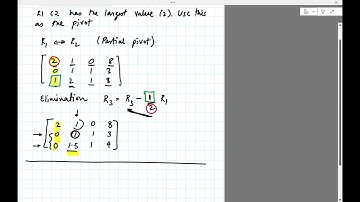 R1 C2 has the largest value (2). Use this
as the pivot
R₁ ↔ R₂ (Partial pivot)
2 1 0 8
0 1 1 3
1 2 1 8
Elimination R₃ = R₃ - 1/2 R₁
2 1 0 8
0 1 1 3
0 1.5 1 4